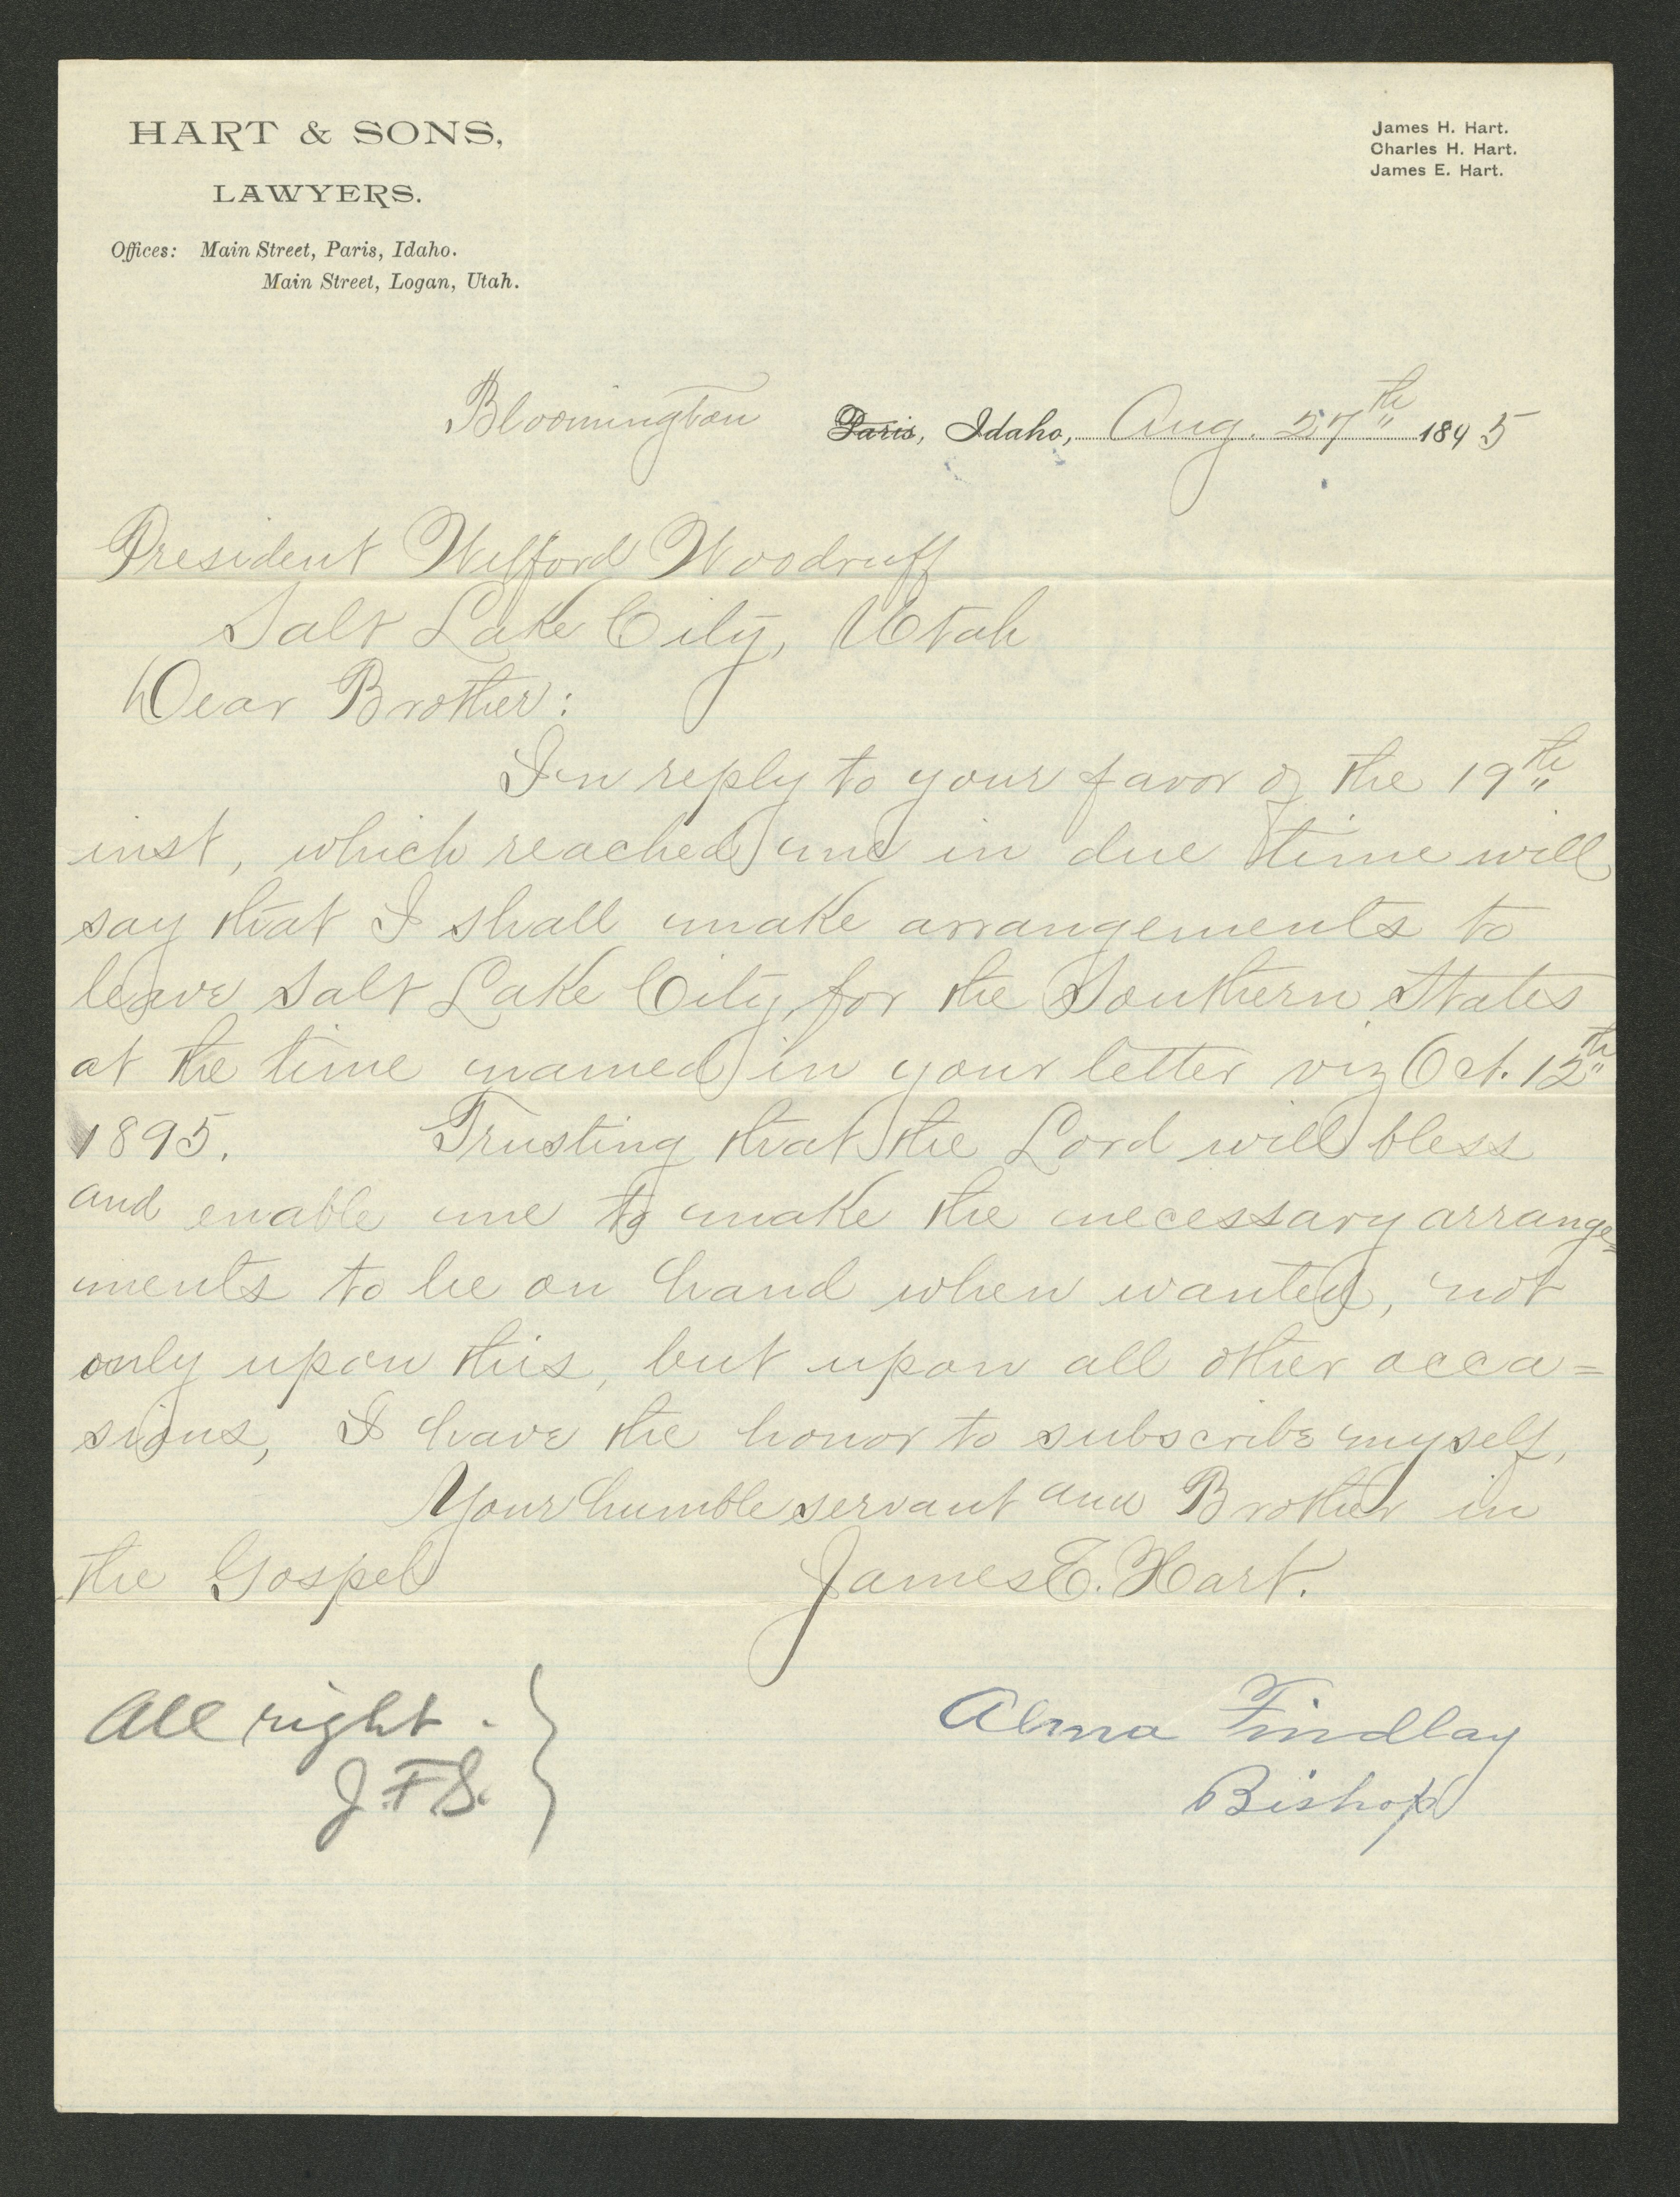 HART & SONS,
LAWYERS.
Offices: Main Street, Paris, Idaho.
Main Street, Logan, Utah.
James H. Hart.
Charles H. Hart.
James E. Hart.
Bloomington Paris, Idaho, Aug. 27th 1895
President Wilford Woodruff
Salt Lake City, Utah
Dear Brother:
In reply to your favor of the 19th
inst, which reached me in due time will
say that I shall make arrangements to
leave Salt Lake City, for the Southern States
at the time named in your letter viz Oct. 12th
1895. Trusting that the Lord will bless
and enable me to make the necessary arrange=
ments to be on hand when wanted, not
only upon this, but upon all other occa=
sions, I have the honor to subscribe myself,
Your humble servant and Brother in
the Gospel
James E. Hart.
All right.
J. F. S.
Alma Findlay
Bishop